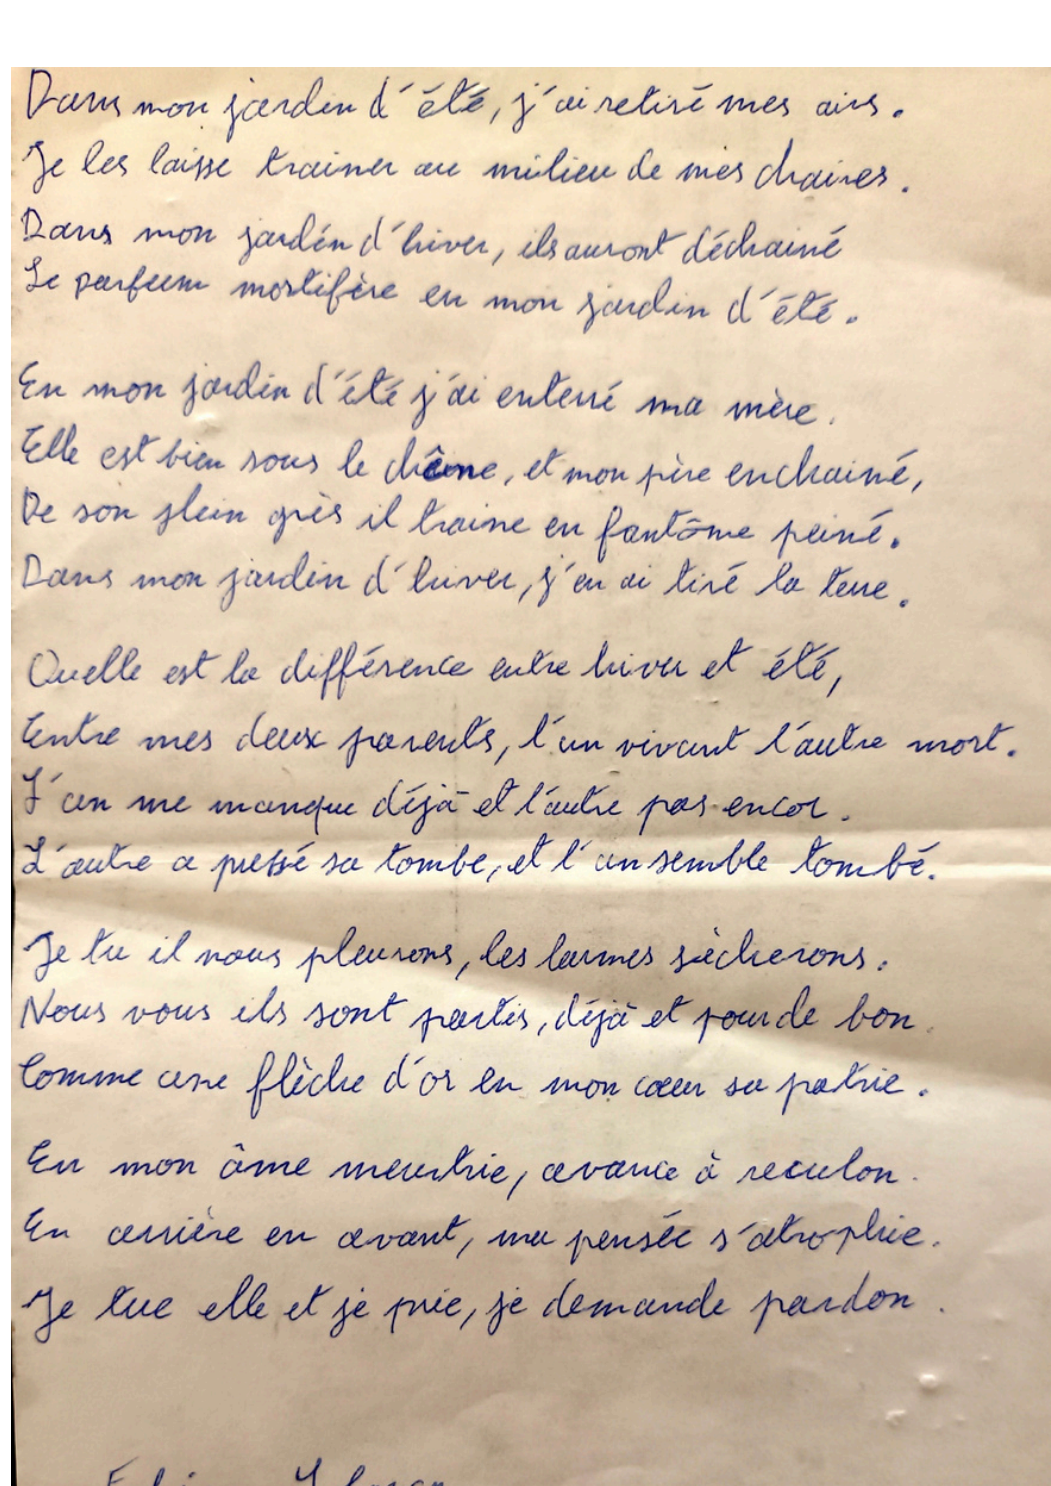 Dans mon jardin d'été, j'ai retiré mes airs.
Je les laisse trainer au milieu de mes chaires.
Dans mon jardin d'hiver, ils auront déchainé
Le parfum mortifère en mon jardin d'été.
En mon jardin d'été j'ai enterré ma mère.
Elle est bien sous le chêne, et mon père enchainé,
De son plein grès il traine en fantôme peiné.
Dans mon jardin d'hiver, j'en ai tiré la terre.
Quelle est la différence entre hiver et été,
Entre mes deux parents, l'un vivant l'autre mort.
L'un me manque déjà et l'autre pas encor.
L'autre a pressé sa tombe, et l'un semble tombé.
Je tu il nous pleurons, les larmes sècherons.
Nous vous ils sont partis, déjà et pour de bon.
Comme une flèche d'or en mon cœur sa patrie.
En mon âme meurtrie, avance à reculon.
En arrière en avant, ma pensée s'atrophie.
Je tue elle et je prie, je demande pardon.